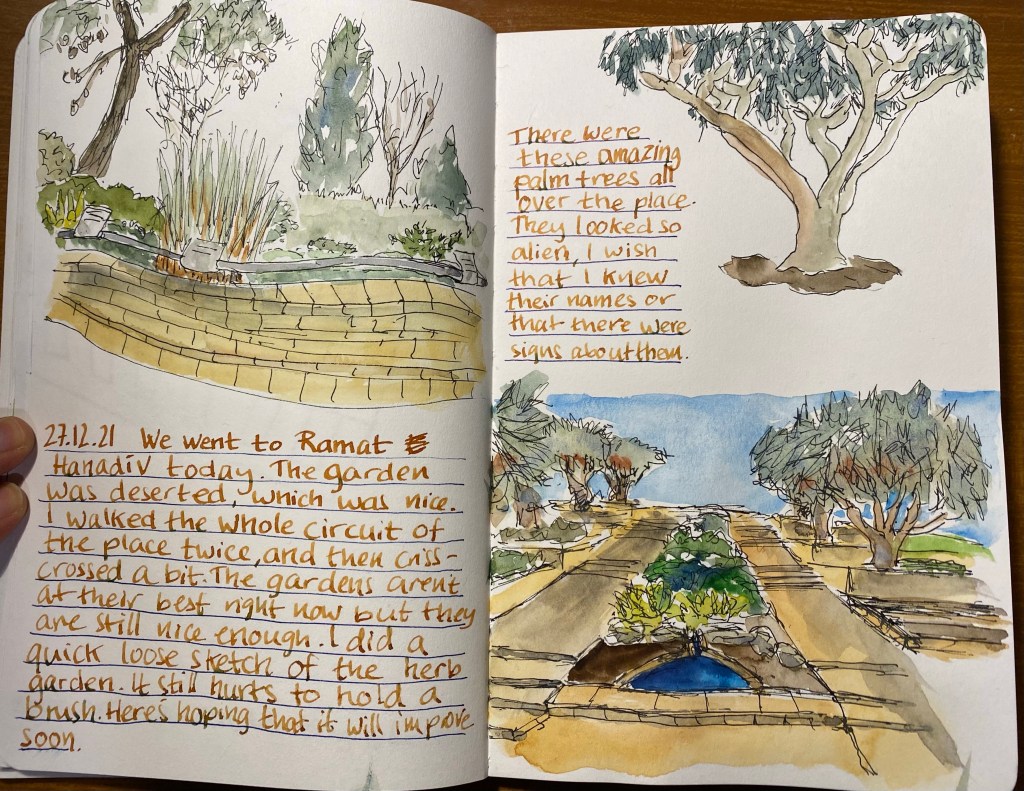 27.12.21 We went to Ramat
Hanadiv today. The garden
was deserted, which was nice.
I walked the whole circuit of
the place twice, and then criss-
crossed a bit. The gardens arent
at their best right now but they
are still nice enough. I did a
quick loose sketch of the herb
garden. It still hurts to hold a
brush. Here's hoping that it will improve
soon.
There were
these amazing
palm trees all
over the place.
They looked so
alien, I wish
that I knew
their names or
that there were
signs about them.